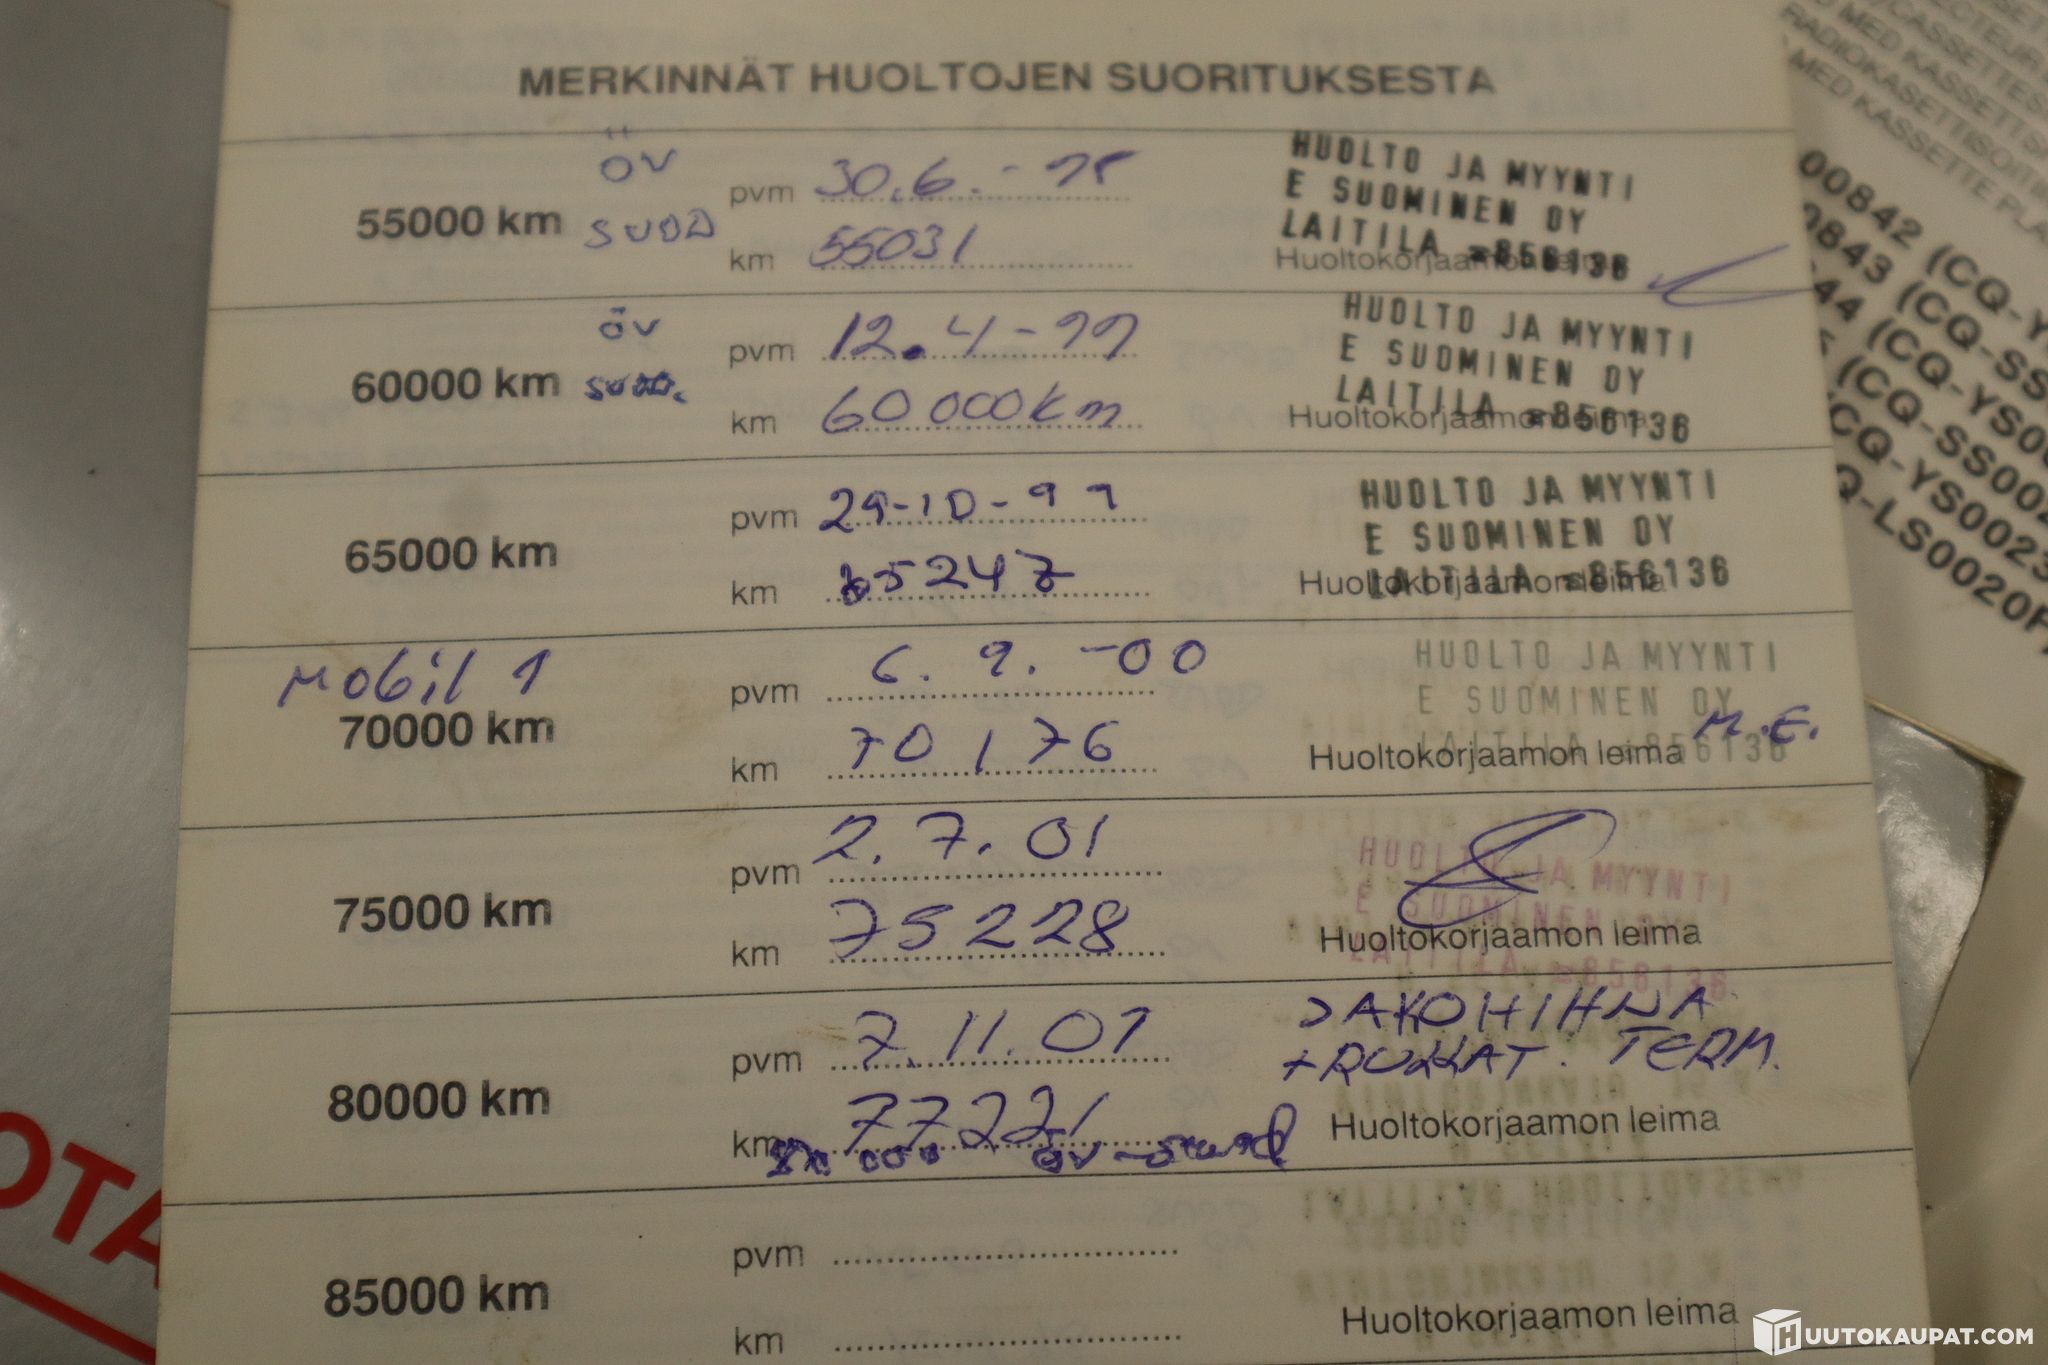 MERKINNÄT HUOLTOJEN SUORITUKSESTA
55000 km
ÖV
SUOD
pvm 30.6.-
km 55031
HUOLTO JA MYYNTI
E SUOMINEN OY
LAITILA 856136
Huoltokorjaamon leima
60000 km
ÖV
SUOD.
pvm 12.4-99
km 60 000 km
HUOLTO JA MYYNTI
E SUOMINEN OY
LAITILA 856136
Huoltokorjaamon leima
65000 km
pvm 29-10-99
km 65247
HUOLTO JA MYYNTI
E SUOMINEN OY
LAITILA 856136
Huoltokorjaamon leima
Mobil 1
70000 km
pvm 6.9.-00
km 70176
HUOLTO JA MYYNTI
E SUOMINEN OY
LAITILA 856136
M.E.
Huoltokorjaamon leima
75000 km
pvm 2.7.01
km 75228
HUOLTO JA MYYNTI
E SUOMINEN OY
LAITILA 856136
Huoltokorjaamon leima
80000 km
pvm 7.11.01
km 77221
öv
JAKOHIHNA
+RULLAT. TERM.
Huoltokorjaamon leima
85000 km
pvm
km
Huoltokorjaamon leima
MED KASSETTE
00842 (CQ-
0843 (CQ-SS
44 (CQ-YS00
(CQ-SS002
CQ-YS0023
Q-LS0020F
OTA
HUUTOKAUPAT.COM